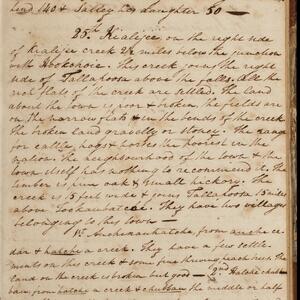 hund 140 & Salley his daughter 50 —
25th Kialijee on the right side
of Kialije creek 2½ miles below the junction
with Hook,choie. This creek joins the right
side of Tallapoosa above the falls. All the
rich flats of the creek are settled. The land
about the town is poor & broken, the fields are
on the narrow flats & in the bends of the creek
the broken land gravelly or stoney. The range
for cattle, hogs & horses the poorest in the
nation. The neighbourhood of the town & the
town itself has nothing to recommend it. The
timber is pine oak & small hickory. The
creek is 15 feet wide & joins Tallapoosa 15 miles
above Tookaubatchee. They have two villages
belonging to this town —
1st Auchenauhatche, from auche ce-
dar & hatche a creek. They have a few settle
ments on this creek & some fine thriving peach trees the
land on the creek is broken but good — 2nd Hatche chub-
bau, from hatche a creek & chubbau the middle or half